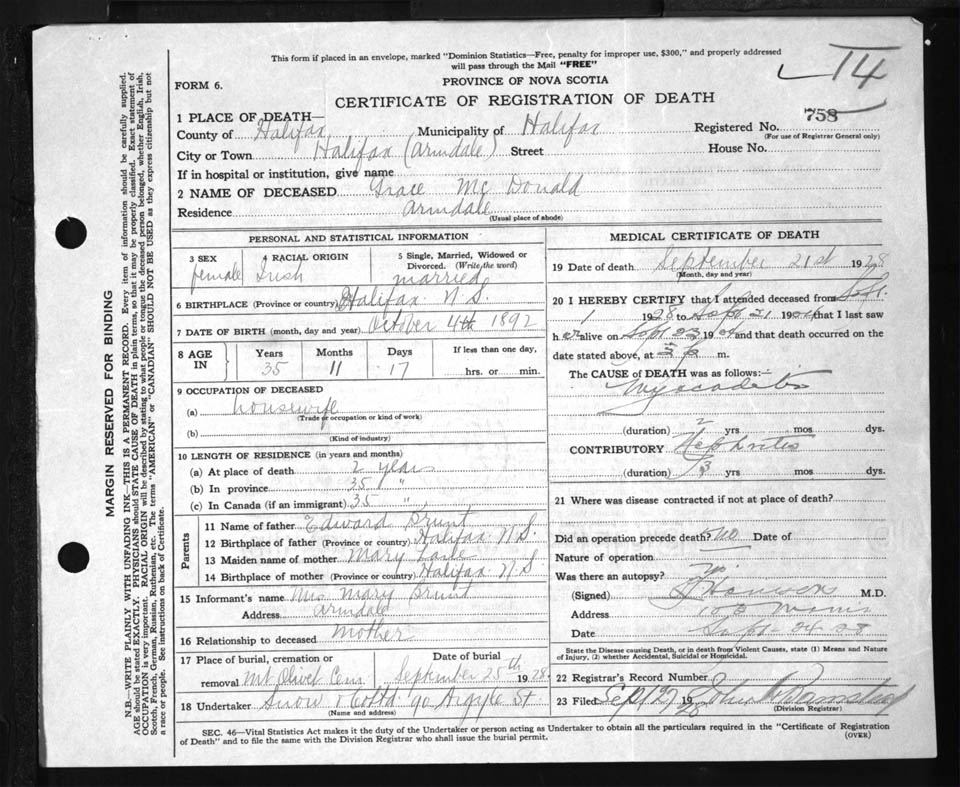 This form if placed in an envelope, marked "Dominion Statistics—Free, penalty for improper use, $300," and properly addressed
will pass through the Mail "FREE"
14
PROVINCE OF NOVA SCOTIA
FORM 6.
CERTIFICATE OF REGISTRATION OF DEATH
758
1 PLACE OF DEATH—
County of Halifax Municipality of Halifax Registered No.
(For use of Registrar General only)
City or Town Halifax (Armdale) Street House No.
If in hospital or institution, give name
2 NAME OF DECEASED Grace Mc Donald
Residence Armdale
(Usual place of abode)
PERSONAL AND STATISTICAL INFORMATION
3 SEX 4 RACIAL ORIGIN 5 Single, Married, Widowed or
Divorced. (Write the word)
female Irish married
6 BIRTHPLACE (Province or country) Halifax N.S.
7 DATE OF BIRTH (month, day and year) October 4th 1892
8 AGE IN Years Months Days If less than one day,
35 11 17 hrs. or min.
9 OCCUPATION OF DECEASED
(a) housewife
(Trade or occupation or kind of work)
(b)
(Kind of industry)
10 LENGTH OF RESIDENCE (in years and months)
(a) At place of death 2 years
(b) In province 35 "
(c) In Canada (if an immigrant) 35 "
Parents
11 Name of father Edward Brunt
12 Birthplace of father (Province or country) Halifax N.S.
13 Maiden name of mother Mary
14 Birthplace of mother (Province or country) Halifax N.S
15 Informant's name Mrs Mary Brunt
Address Armdale
16 Relationship to deceased Mother
17 Place of burial, cremation or Date of burial
removal Mt Olivet Cem. September 25th 1928
18 Undertaker Snow & 90 Argyle St
(Name and address)
MEDICAL CERTIFICATE OF DEATH
19 Date of death September 21st 1928
(Month, day and year)
20 I HEREBY CERTIFY that I attended deceased from Sept.
1 1928 to Sept 21 19 that I last saw
h er alive on Sept 19 and that death occurred on the
date stated above, at 3 p m.
The CAUSE of DEATH was as follows:
(duration) 2 yrs mos dys.
CONTRIBUTORY Nephritis
(duration) 3 yrs mos dys.
21 Where was disease contracted if not at place of death?
Did an operation precede death? No Date of
Nature of operation
Was there an autopsy?
(Signed) M.D.
Address
Date Sept 24 28
State the Disease causing Death, or in death from Violent Causes, state (1) Means and Nature
of Injury, (2) whether Accidental, Suicidal or Homicidal.
22 Registrar's Record Number
23 Filed Sept 27 1928 John
(Division Registrar)
SEC. 46—Vital Statistics Act makes it the duty of the Undertaker or person acting as Undertaker to obtain all the particulars required in the "Certificate of Registration
of Death" and to file the same with the Division Registrar who shall issue the burial permit. (OVER)
MARGIN RESERVED FOR BINDING
N.B.—WRITE PLAINLY WITH UNFADING INK—THIS IS A PERMANENT RECORD. Every item of information should be carefully supplied.
AGE should be stated EXACTLY. PHYSICIANS should STATE CAUSE OF DEATH in plain terms, so that it may be properly classified. Exact statement of
OCCUPATION is very important. RACIAL ORIGIN will be described by stating to what people or tongue the deceased person belonged, whether English, Irish,
Scotch, French, German, Russian, Ruthenian, etc. The terms "AMERICAN" or "CANADIAN" SHOULD NOT BE USED as they express citizenship but not
a race or people. See instructions on back of Certificate.